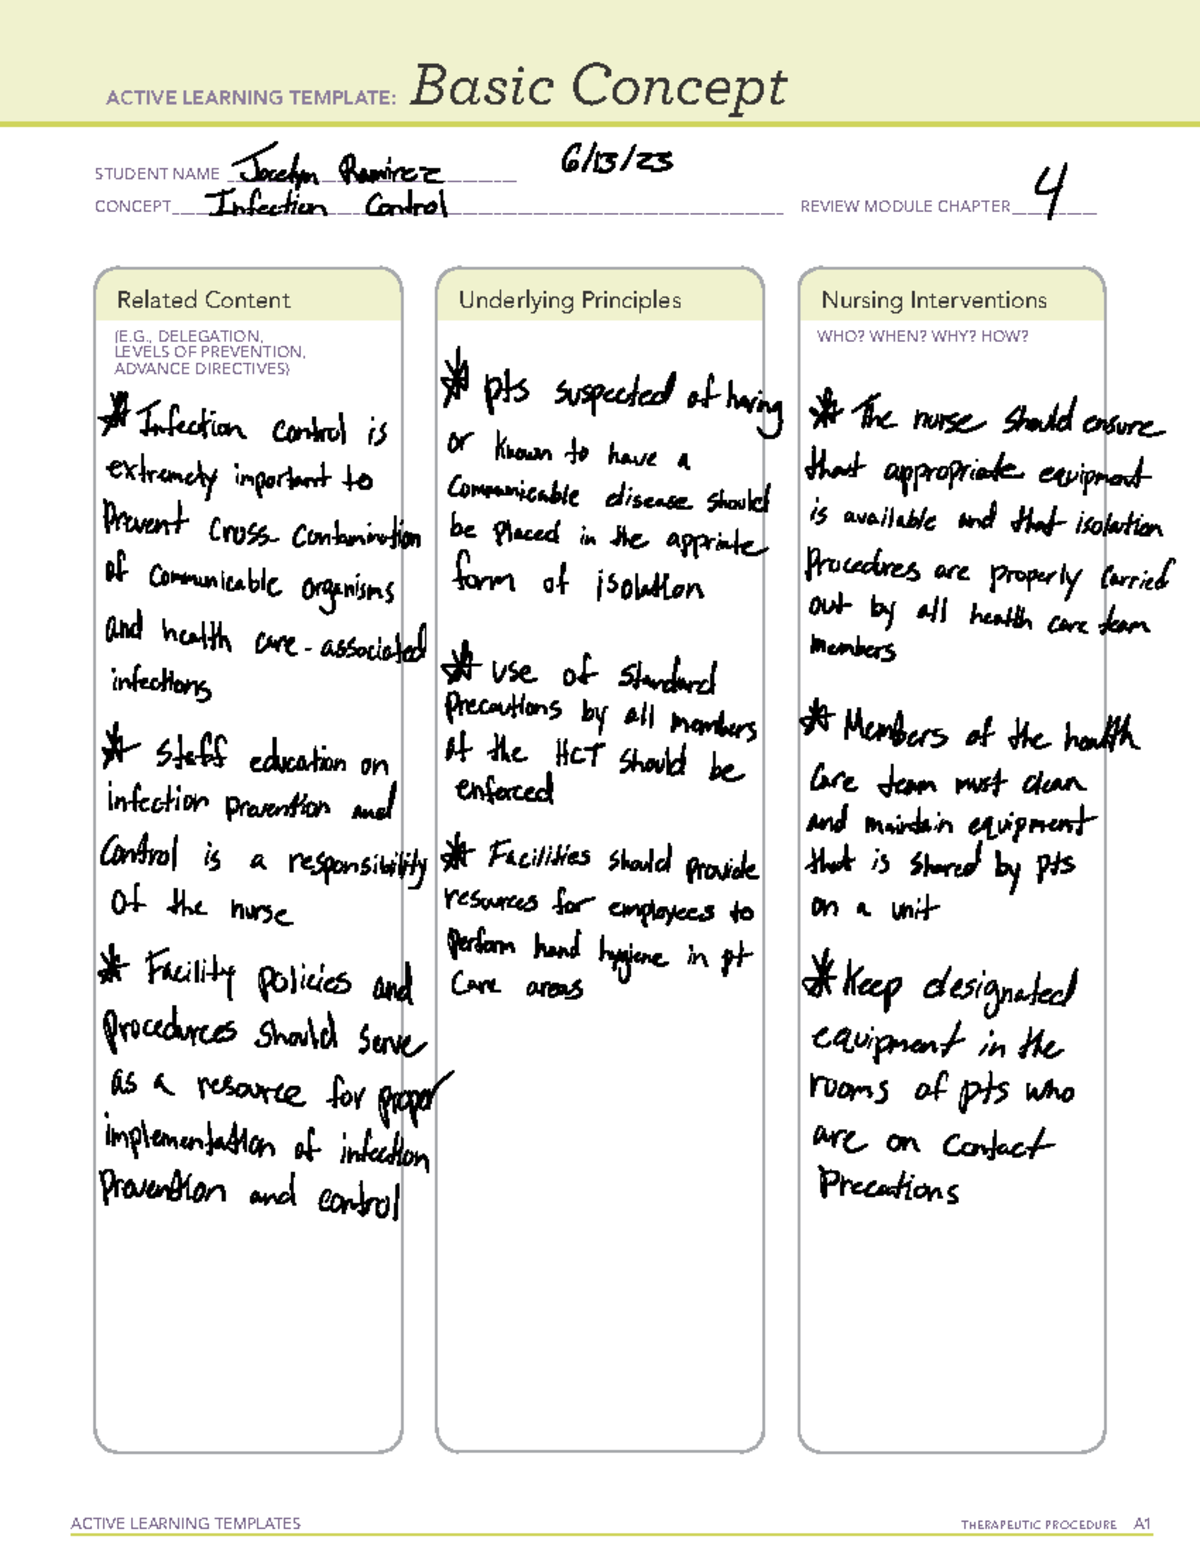 ACTIVE LEARNING TEMPLATE: Basic Concept
STUDENT NAME Jocelyn Ramirez 6/13/23
CONCEPT Infection Control REVIEW MODULE CHAPTER 4
Related Content
(E.G., DELEGATION,
LEVELS OF PREVENTION,
ADVANCE DIRECTIVES)
* Infection control is
extremely important to
Prevent Cross-Contamination
of communicable organisms
and health care-associated
infections
* Staff education on
infection prevention and
Control is a responsibility
of the nurse
* Facility policies and
procedures should serve
as a resource for proper
implementation of infection
Prevention and control
Underlying Principles
* pts suspected of having
or known to have a
Communicable disease should
be placed in the appriate
form of isolation
* use of standard
Precautions by all members
of the HCT should be
enforced
* Facilities should provide
resources for employees to
perform hand hygiene in pt
Care areas
Nursing Interventions
WHO? WHEN? WHY? HOW?
* The nurse should ensure
that appropriate equipment
is available and that isolation
Procedures are properly carried
out by all health care team
members
* Members of the health
Care team must clean
and maintain equipment
that is shared by pts
on a unit
* Keep designated
equipment in the
rooms of pts who
are on Contact
Precations
ACTIVE LEARNING TEMPLATES THERAPEUTIC PROCEDURE A1